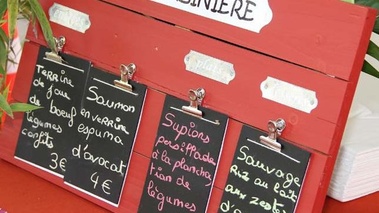 BINIÈRE
Plats
Terrine
de joue
de boeuf
légumes
confits
3€
Saumon
en verrine
espuma
d'avocat
4€
Supions
persillade
à la plancha
tian de
légumes
Sauvage
Riz au lait
aux zestes